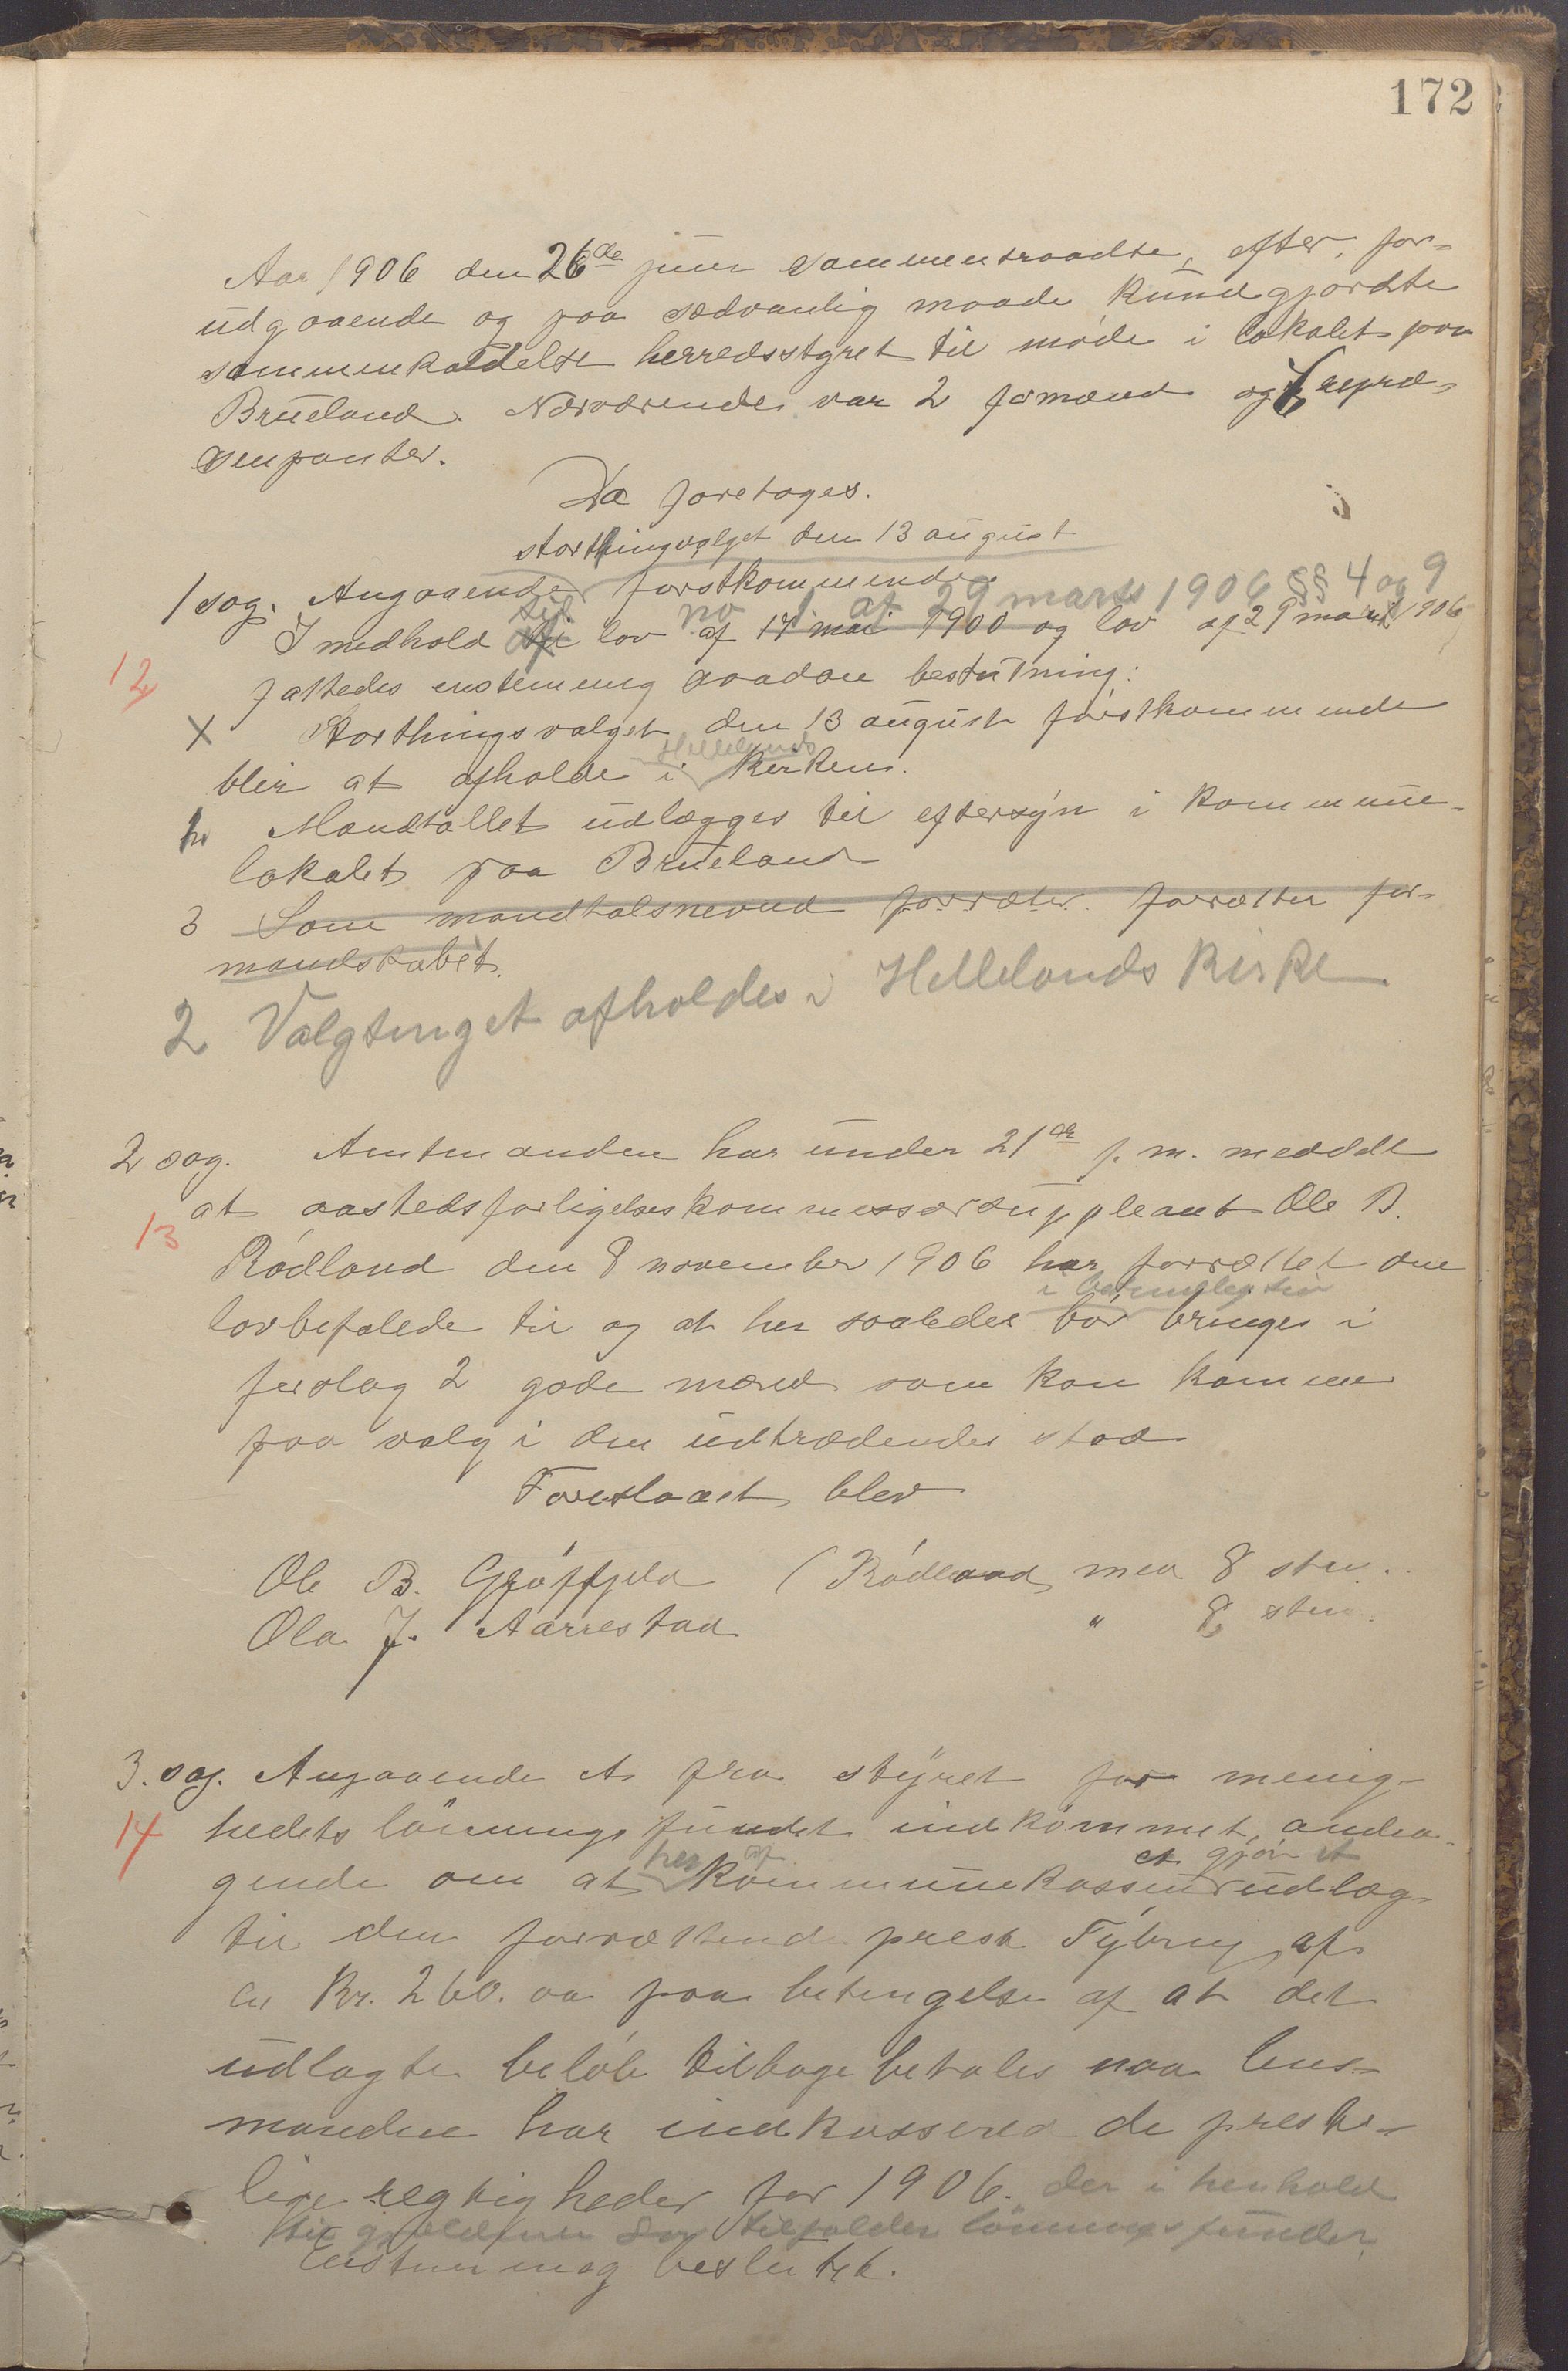 172
Aar 1906 den 26de juni sammentraadte, efter for-
udgaaende og paa sædvanlig maade kundgjordte
sammenkaldelse herredsstyret til møde i lokalet paa
Brueland. Nærværende var 2 formænd og repræ-
sentanter.
Da foretoges.
storthingvalget den 13 august
1 sag. Angaaende førstkommende
til no 1 af 29 marts 1906 §§ 4 og 9
I medhold lov af 17 mai 1900 og lov af 29 marts 1906
12 fattedes enstemmig saadan beslutning:
X Storthingsvalget den 13 august førstkommende
Hellelands
blir at afholde i kirken.
Mandtallet udlægges til eftersyn i kommune-
lokalet paa Brueland
3 Som mandtalsnevnd forretter for-
mandskabet.
2 Valgtinget afholdes i Hellelands kirke
2 sag. Amtmanden har under 21de f. m. meddelt
at aastedsforligelseskommissærsuppleant Ole B.
13
Rødland den 8 november 1906 har forrettet den
i betimelig tid
lovbefalede tid og at her saaledes bør bringes i
forslag 2 gode mænd som kan komme
paa valg i den udtrædendes sted
Foreslaaet blev
Ole B. Gröffjeld (Rødland med 8 stm.
Ola J. Aarrestad " 8 stm.
3. sag. Angaaende et fra styret for menig-
14 hedets lönningsfundet indkommet andra-
her af et gjör et
gende om at kommunekassen udlæg
til den forrettende prest Tybring af
Kr. 260.00 paa betingelse af at det
udlagte beløb tilbagebetales naar lens-
manden har indkassered de preste-
lige regtigheder for 1906. der i henhold
til gjældene lov tilfalder lönningsfundet
Enstemmig besluttet.